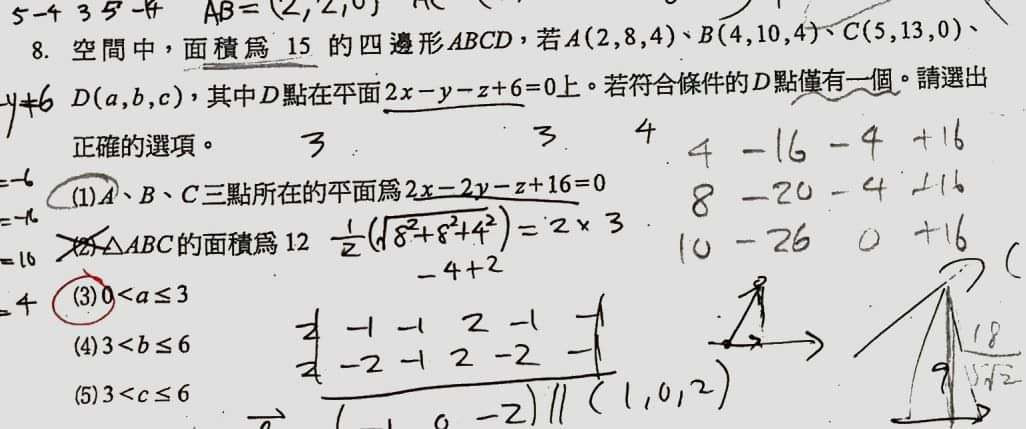 5-4 3 5 -4 AB=(2,2,0) AC
8. 空間中，面積為 15 的四邊形ABCD，若A(2,8,4)、B(4,10,4)、C(5,13,0)、
-y+6 D(a,b,c)，其中D點在平面2x-y-z+6=0上。若符合條件的D點僅有一個。請選出
正確的選項。 3 3 4 4 -16 -4 +16
=-6 (1)A、B、C三點所在的平面為2x-2y-z+16=0 8 -20 -4 +16
=-16 (2)△ABC的面積為12 1/2(√8²+8²+4²)=2×3 10 -26 0 +16
=10 -4+2
=4 (3)0<a≤3
2 -1 -1 2 -1 -1
(4)3<b≤6 2 -2 -1 2 -2 -1 18
(5)3<c≤6 9 5√2
0 -2)∥(1,0,2)